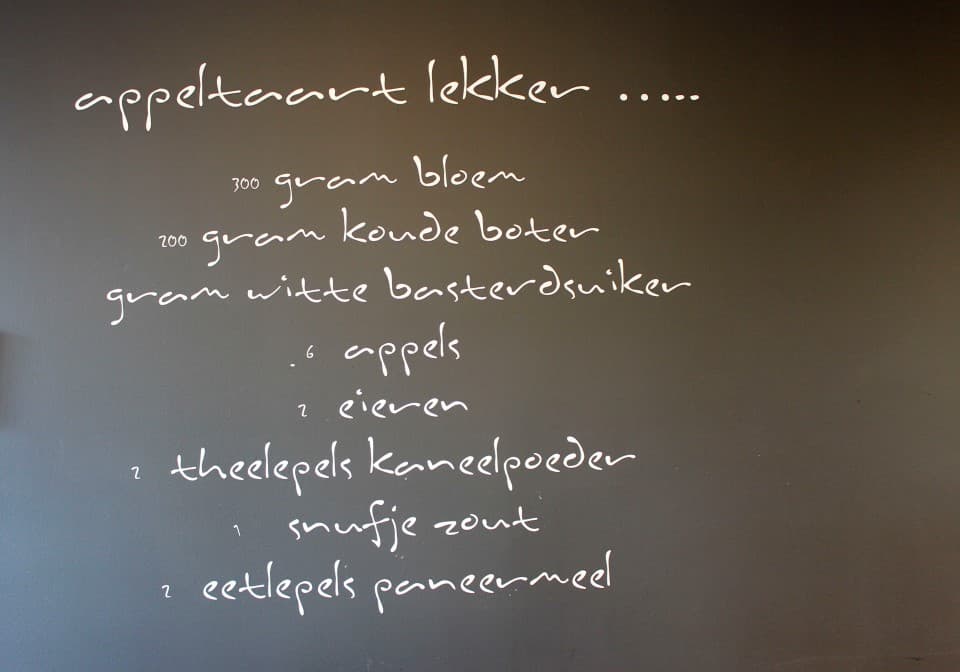 appeltaart lekker .....
300 gram bloem
200 gram koude boter
gram witte basterdsuiker
. 6 appels
2 eieren
2 theelepels kaneelpoeder
1 snufje zout
2 eetlepels paneermeel